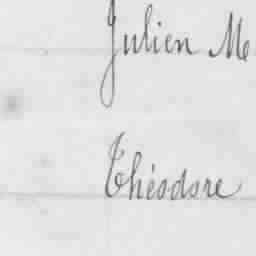 Julien M
Théodore